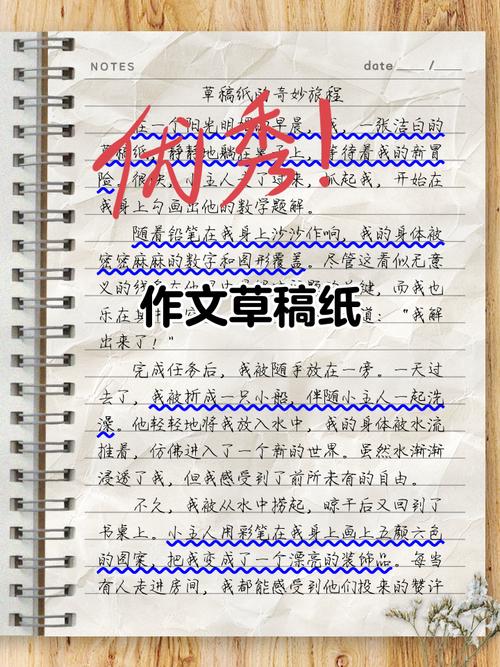 NOTES
date /
草稿纸的奇妙旅程
在一个阳光明媚的早晨，我，一张洁白的
草稿纸，静静地躺在桌子上，等待着我的新冒
险。很快，小主人走了过来，抓起我，开始在
我身上勾画出他的数学题解。
随着铅笔在我身上沙沙作响，我的身体被
密密麻麻的数字和图形覆盖。尽管这看似无意
义的线条在他，而我也
乐在其道："我解
出来了！"
完成任务后，我被随手放在一旁。一天过
去了，我被折成一只小船，伴随小主人一起洗
澡。他轻轻地将我放入水中，我的身体被水流
推着，仿佛进入了一个新的世界。虽然水渐渐
浸透了我，但我感受到了前所未有的自由。
不久，我被从水中捞起，晾干后又回到了
书桌上。小主人用彩笔在我身上画上五颜六色
的图案，把我变成了一个漂亮的装饰品。每当
有人走进房间，我都能感受到他们投来的赞许
优秀！
作文草稿纸